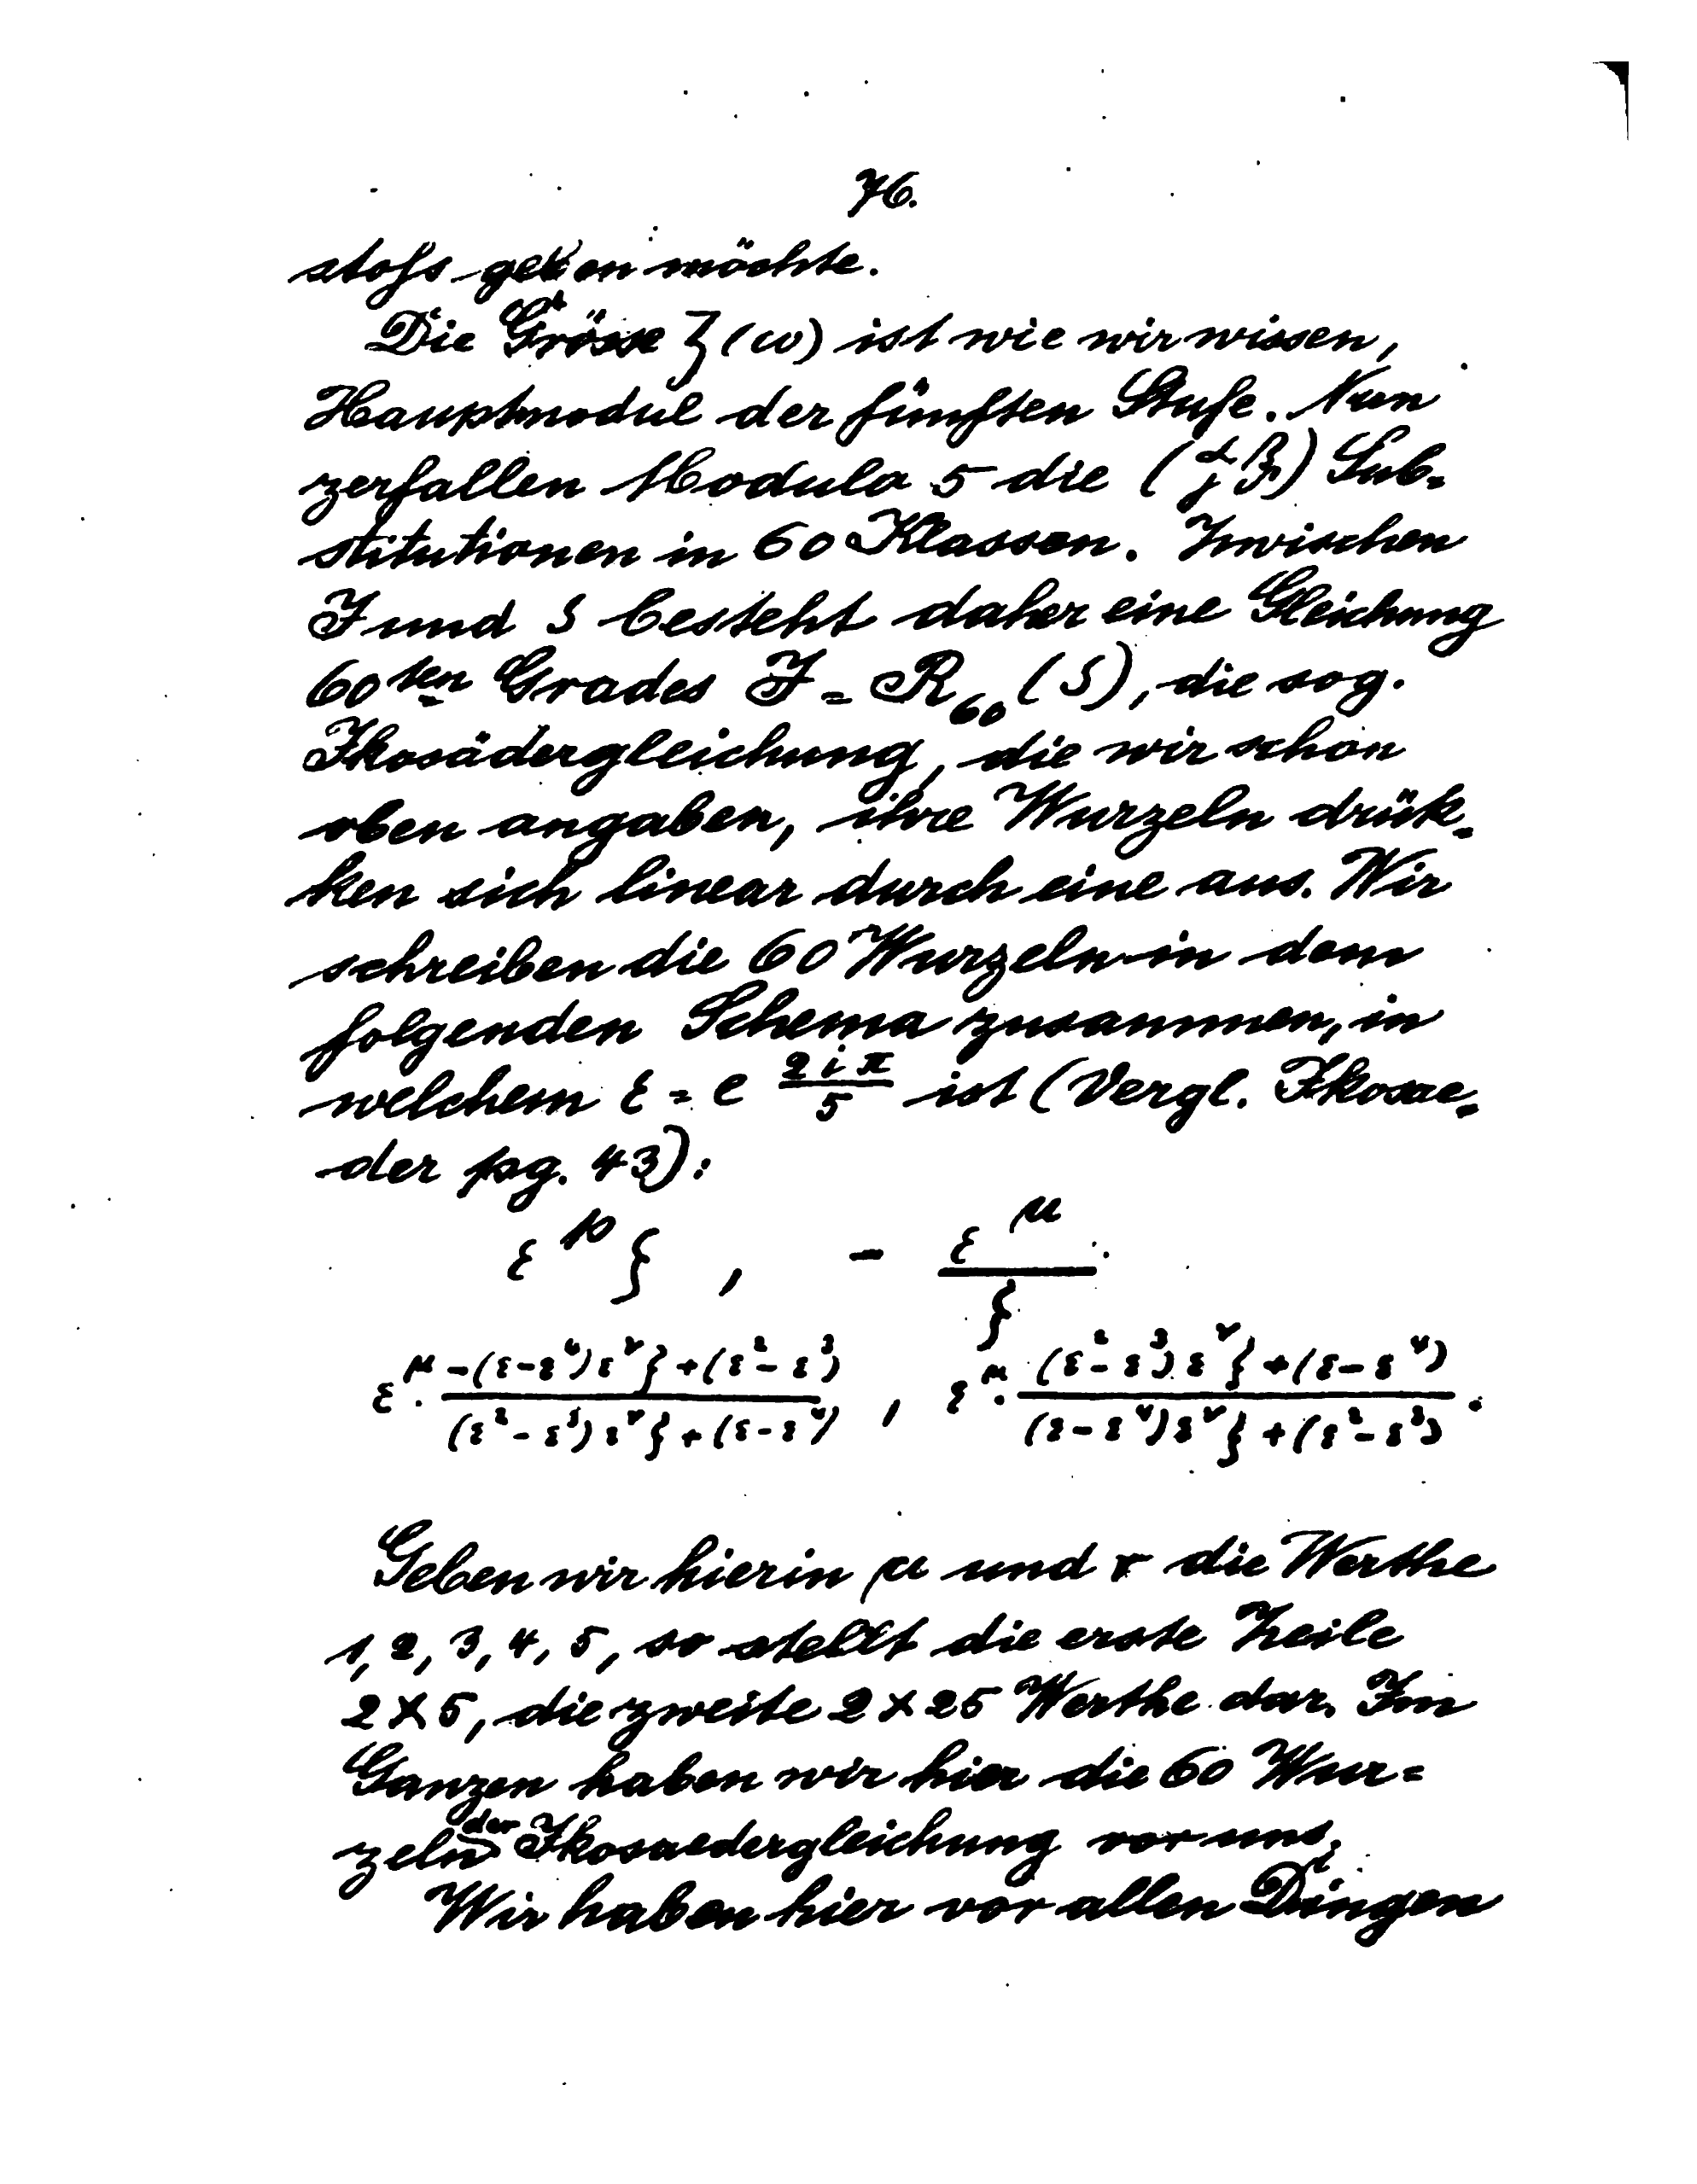 76.
stoſs geben möchte.
Die Grösse ζ(ω) ist wie wir wissen,
Hauptmodul der fünften Stufe. Nun
zerfallen Modulo 5 die (α β γ δ) Sub-
stitutionen in 60 Klassen. Zwischen
J und ζ besteht daher eine Gleichung
60ten Grades J = R₆₀(ζ), die sog.
Ikosädergleichung, die wir schon
oben angaben, ihre Wurzeln drük-
ken sich linear durch eine aus. Wir
schreiben die 60 Wurzeln in dem
folgenden Schema zusammen, in
welchem ε = e^(2iπ/5) ist (Vergl. Ikosae-
der pg. 43):
ε^μ ζ , - ε^μ/ζ
ε^μ · (-(ε-ε⁴)ε^ν ζ + (ε²-ε³))/((ε²-ε³)ε^ν ζ + (ε-ε⁴)) , ε^μ · ((ε²-ε³)ε^ν ζ + (ε-ε⁴))/((ε-ε⁴)ε^ν ζ + (ε²-ε³)) .
Geben wir hierin μ und ν die Werthe
1, 2, 3, 4, 5, so stellt die erste Zeile
2×5, die zweite 2×25 Werthe dar. Im
Ganzen haben wir hier die 60 Wur=
zeln der Ikosaedergleichung vor uns.
Wir haben hier vor allen Dingen